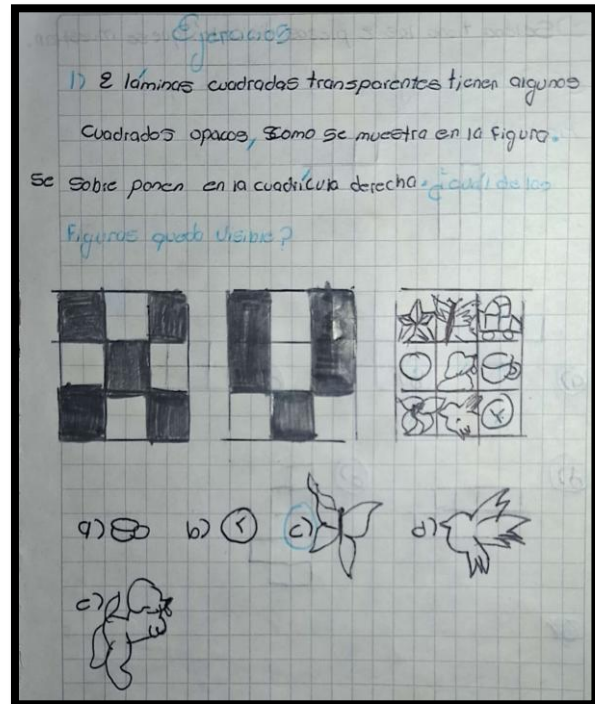 Ejercicios
1) 2 láminas cuadradas transparentes tienen algunos
cuadrados opacos, como se muestra en la figura.
Se sobre ponen en la cuadrícula derecha. ¿cuál de las
figuras quedo visible?
a) b) c) d)
c)